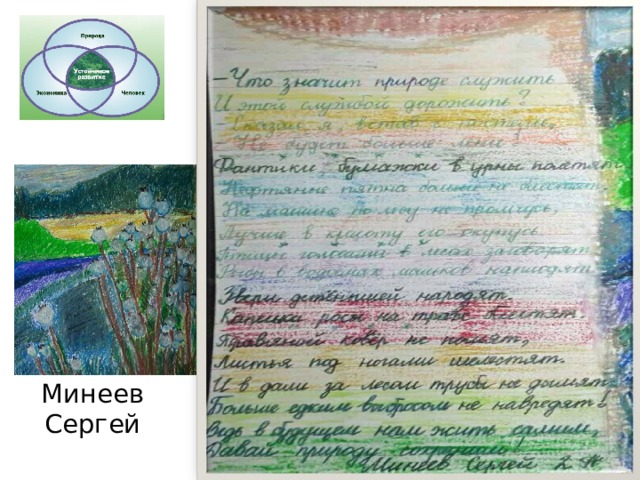 Природа
Устойчивое
развитие
Экономика
Человек
Минеев
Сергей
—Что значит природе служить
И этой службой дорожить?
-Сказал я, встав с
- Не будет больше лени!
Фантики, бумажки в урны полетят,
Нефтяные пятна больше не блестят.
На машине по лесу не промчусь,
Лучше в красоту его окунусь.
Птицы голосами в лесах заговорят,
в водоемах мальков наплодят
Звери детёнышей народят.
Капелька росы на траве блестят.
Травяной ковёр не помят,
Листья под ногами шелестят.
И в дали за лесом трубы не дымят
Больше едким выбросом не навредят!
Ведь в будущем нам жить самим,
Давай природу сохраним
Минеев Сергей